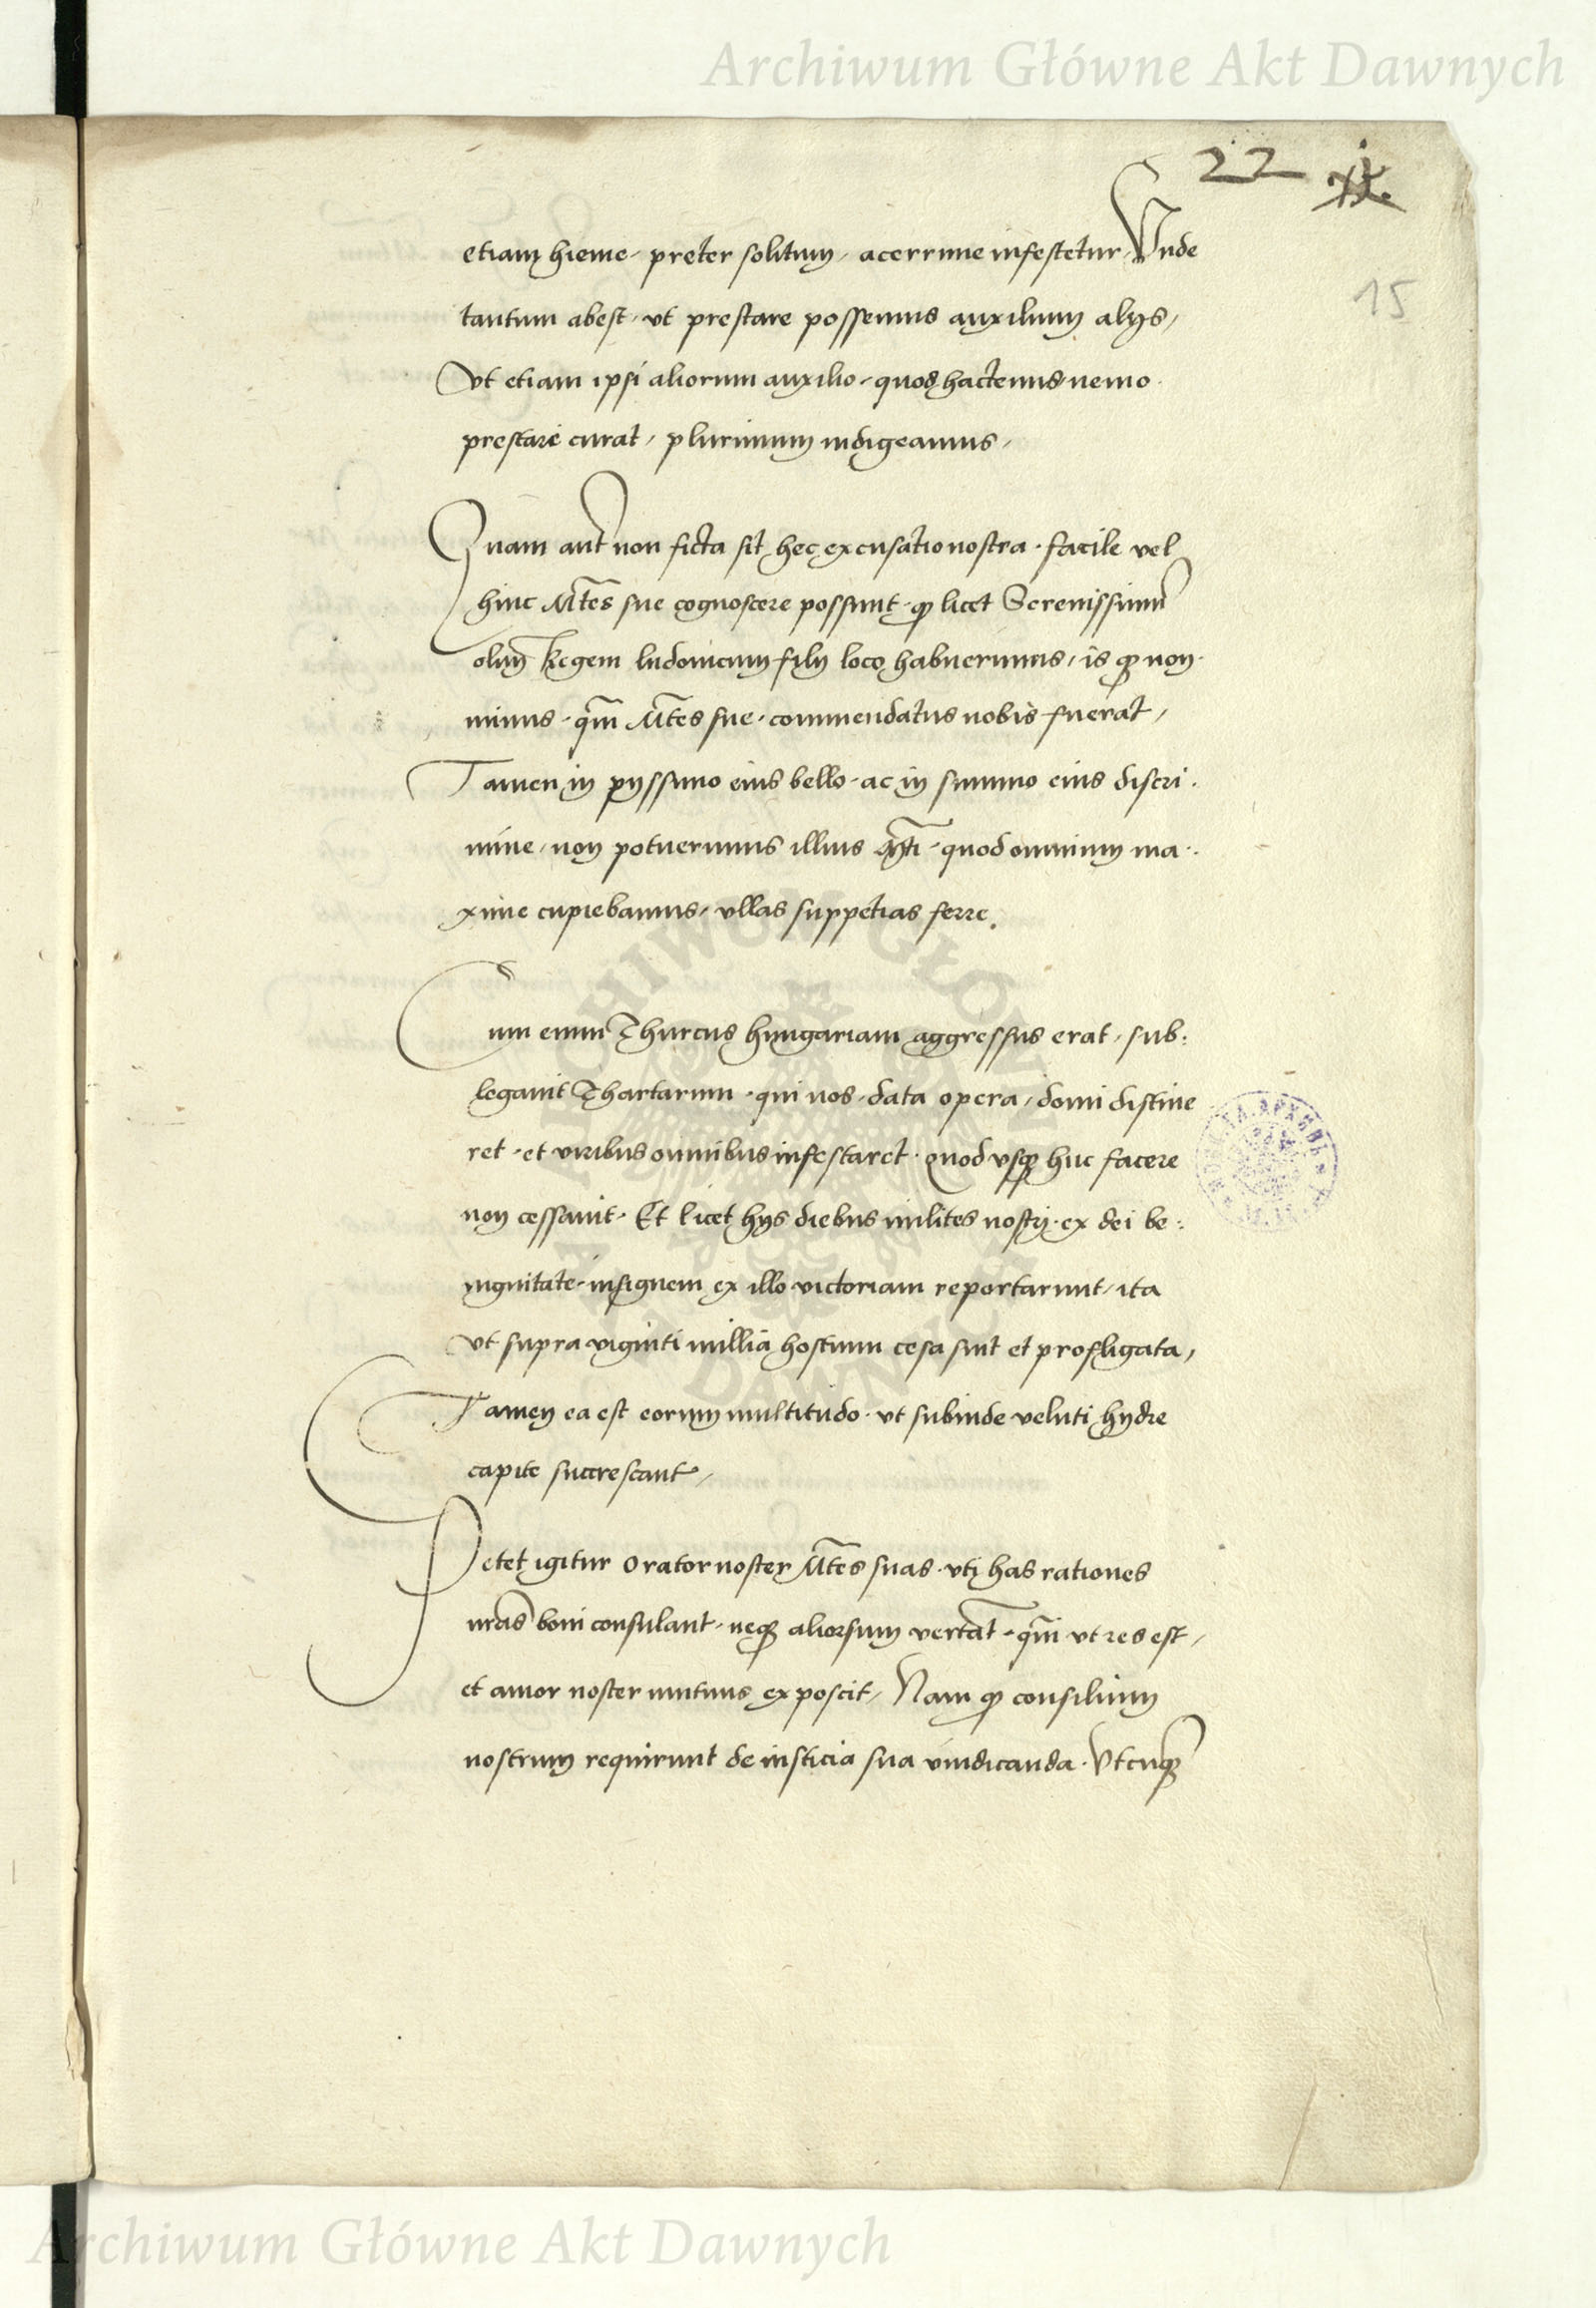 Archiwum Główne Akt Dawnych
22
15
etiam hieme, preter solitum, acerrime infestetur, Vnde
tantum abest, vt prestare possemus auxilium alijs,
Vt etiam ipsi aliorum auxilio, quod hactenus nemo
prestare curat, plurimum indigeamus,
Quam aut̃ non ficta sit hec excusatio nostra, facile vel
hinc M̃tes sue cognoscere possunt, ꝙ licet Serenissimũ
olim Regem ludouicum filij loco habuerimus, is ꝙ non
minus, qm̃ M̃tes sue, commendatus nobis fuerat,
Tamen in pijssimo eius bello, ac in summo eius discri.
mine, non potuerimus illius quod omnium ma.
xime cupiebamus, vllas suppetias ferre.
Cum enim Thurcus hungariam aggressus erat, sub:
legauit Thartarum, qui nos, data opera, domi distine
ret, et viribus omnibus infestaret. quod vsqꝫ huc facere
non cessauit. Et licet hijs diebus milites nostri, ex dei be:
nignitate, insignem ex illo victoriam reportarunt, ita
vt supra viginti millia hostium cesa sint et profligata,
Tamen ea est eorum multitudo, vt subinde veluti hydre
capite succrescant,
Petet igitur orator noster M̃tes suas, vti has rationes
nr̃as boni consulant, neqꝫ aliorsum vertãt, qm̃ vt res est,
et amor noster mutuus exposcit, Nam ꝙ consilium
nostrum requirunt de iusticia sua vindicanda. Vtcuqꝫ
Archiwum Główne Akt Dawnych